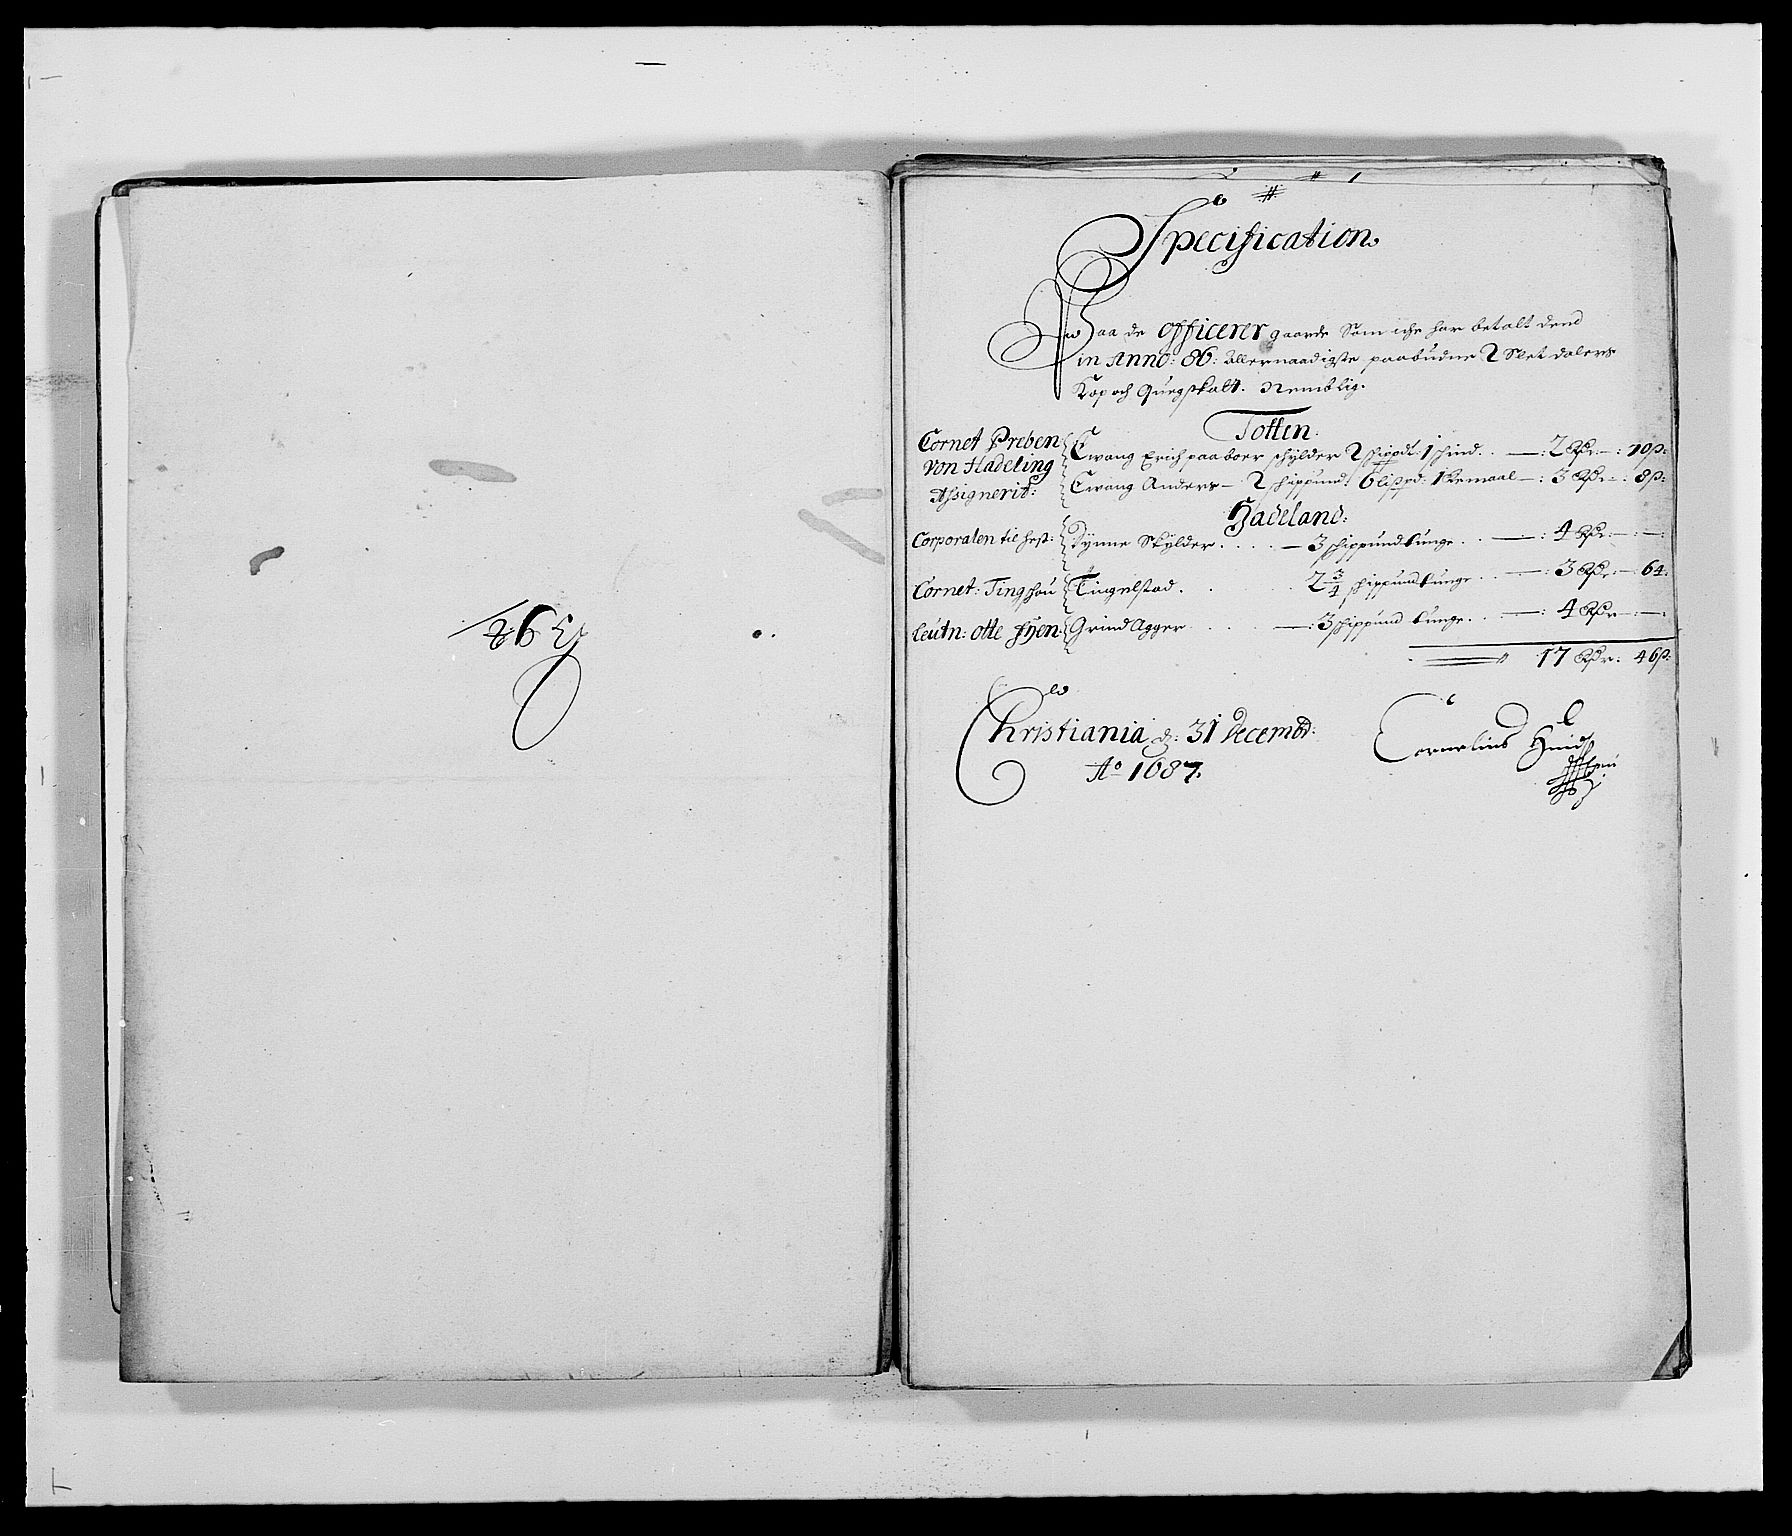 Specification
Paa de officerer gaarde Som iche har betalt dend
in Anno: 86: allernaadigste paabudne 2 Slet dalers
Kop och Quegskatt. Nemblig.
Totten:
Cornet Preben
von Hadeling
Assignerit:
Erich paa boer schylder 2 schippdt: 1 schind. — : 2 Rdr — : 70 ß:
Anders — 2 schippund: 6 lispd: 1 — : 3 Rdr — : 8 ß:
Hadeland:
Corporalen til hest: Dynne Skylder . . . . — 3 schippund tunge . . — : 4 Rdr: — : —
Cornet: Tingelstad . . . 2 3/4 schippund tunge . . — : 3 Rdr — : 64:
Leutn: otte Grind Agger . . . — : 3 schippund tunge . . — : 4 Rdr — : —
17 Rdr: 46 ß:
Christiania d: 31 Decembr:
Ao 1687.
Cornelius